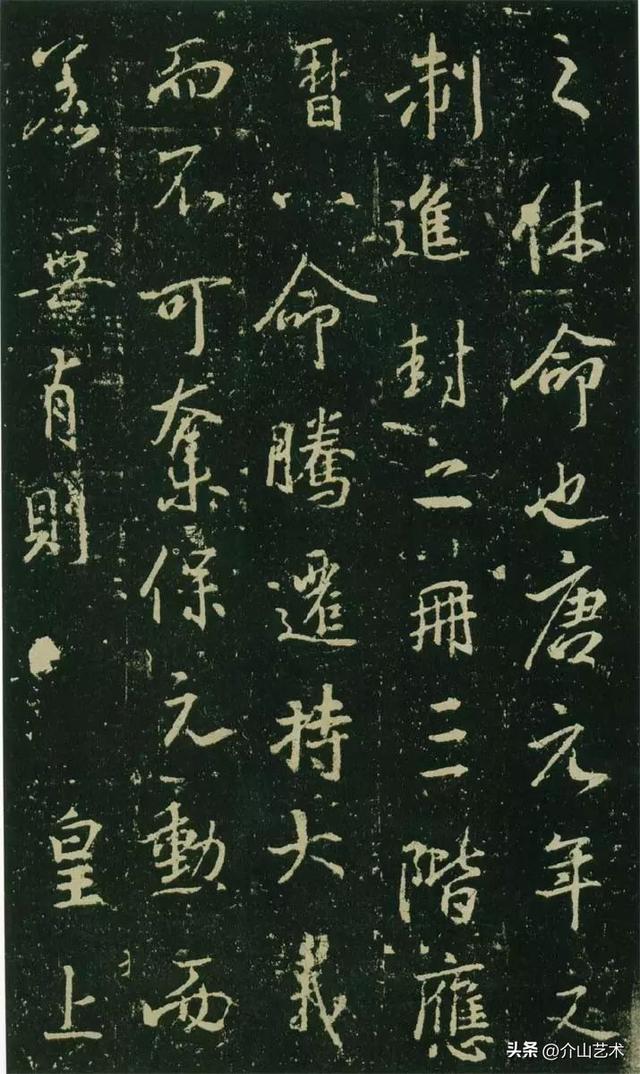 之休命也唐元年
制進封二冊三階應
曆八命騰遷持大義
而不可奪保元勳而
恙無有則 皇上
头条 @介山艺术